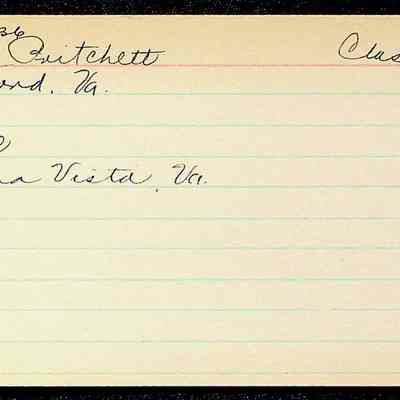 36
Pritchett Clas
ond, Va.
na Vista, Va.